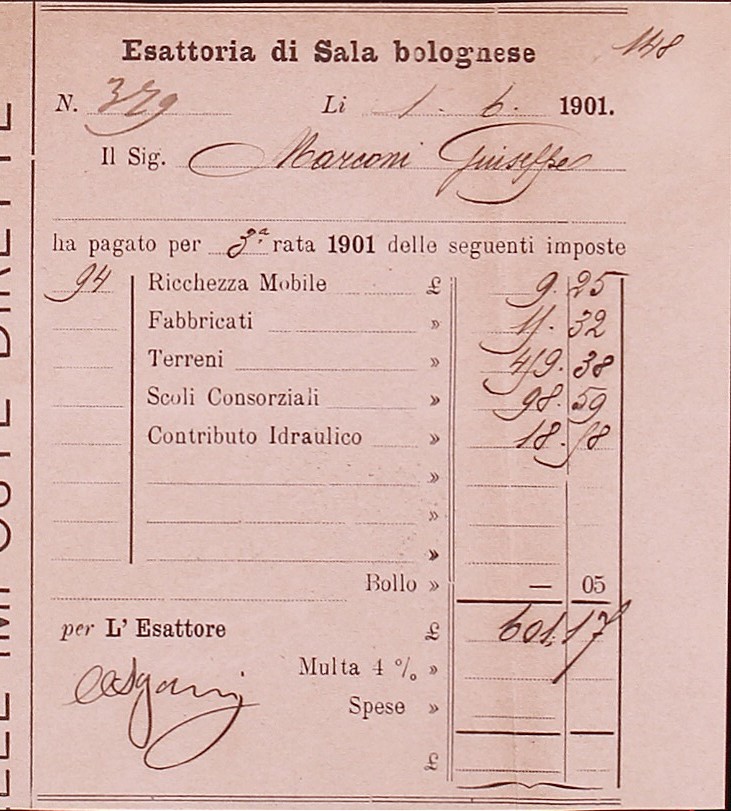 ELLE IMPOSTE DIRETTE
Esattoria di Sala bolognese
148
N. Li 1. 6. 1901.
Il Sig. Marconi Giuseppe
ha pagato per 3ª rata 1901 delle seguenti imposte
94 Ricchezza Mobile £ 9. 25
Fabbricati » 15. 32
Terreni » 459. 38
Scoli Consorziali » 98. 59
Contributo Idraulico » 18. 58
»
»
»
Bollo » — 05
per L' Esattore £ 601. 17
Multa 4 % »
Spese »
£